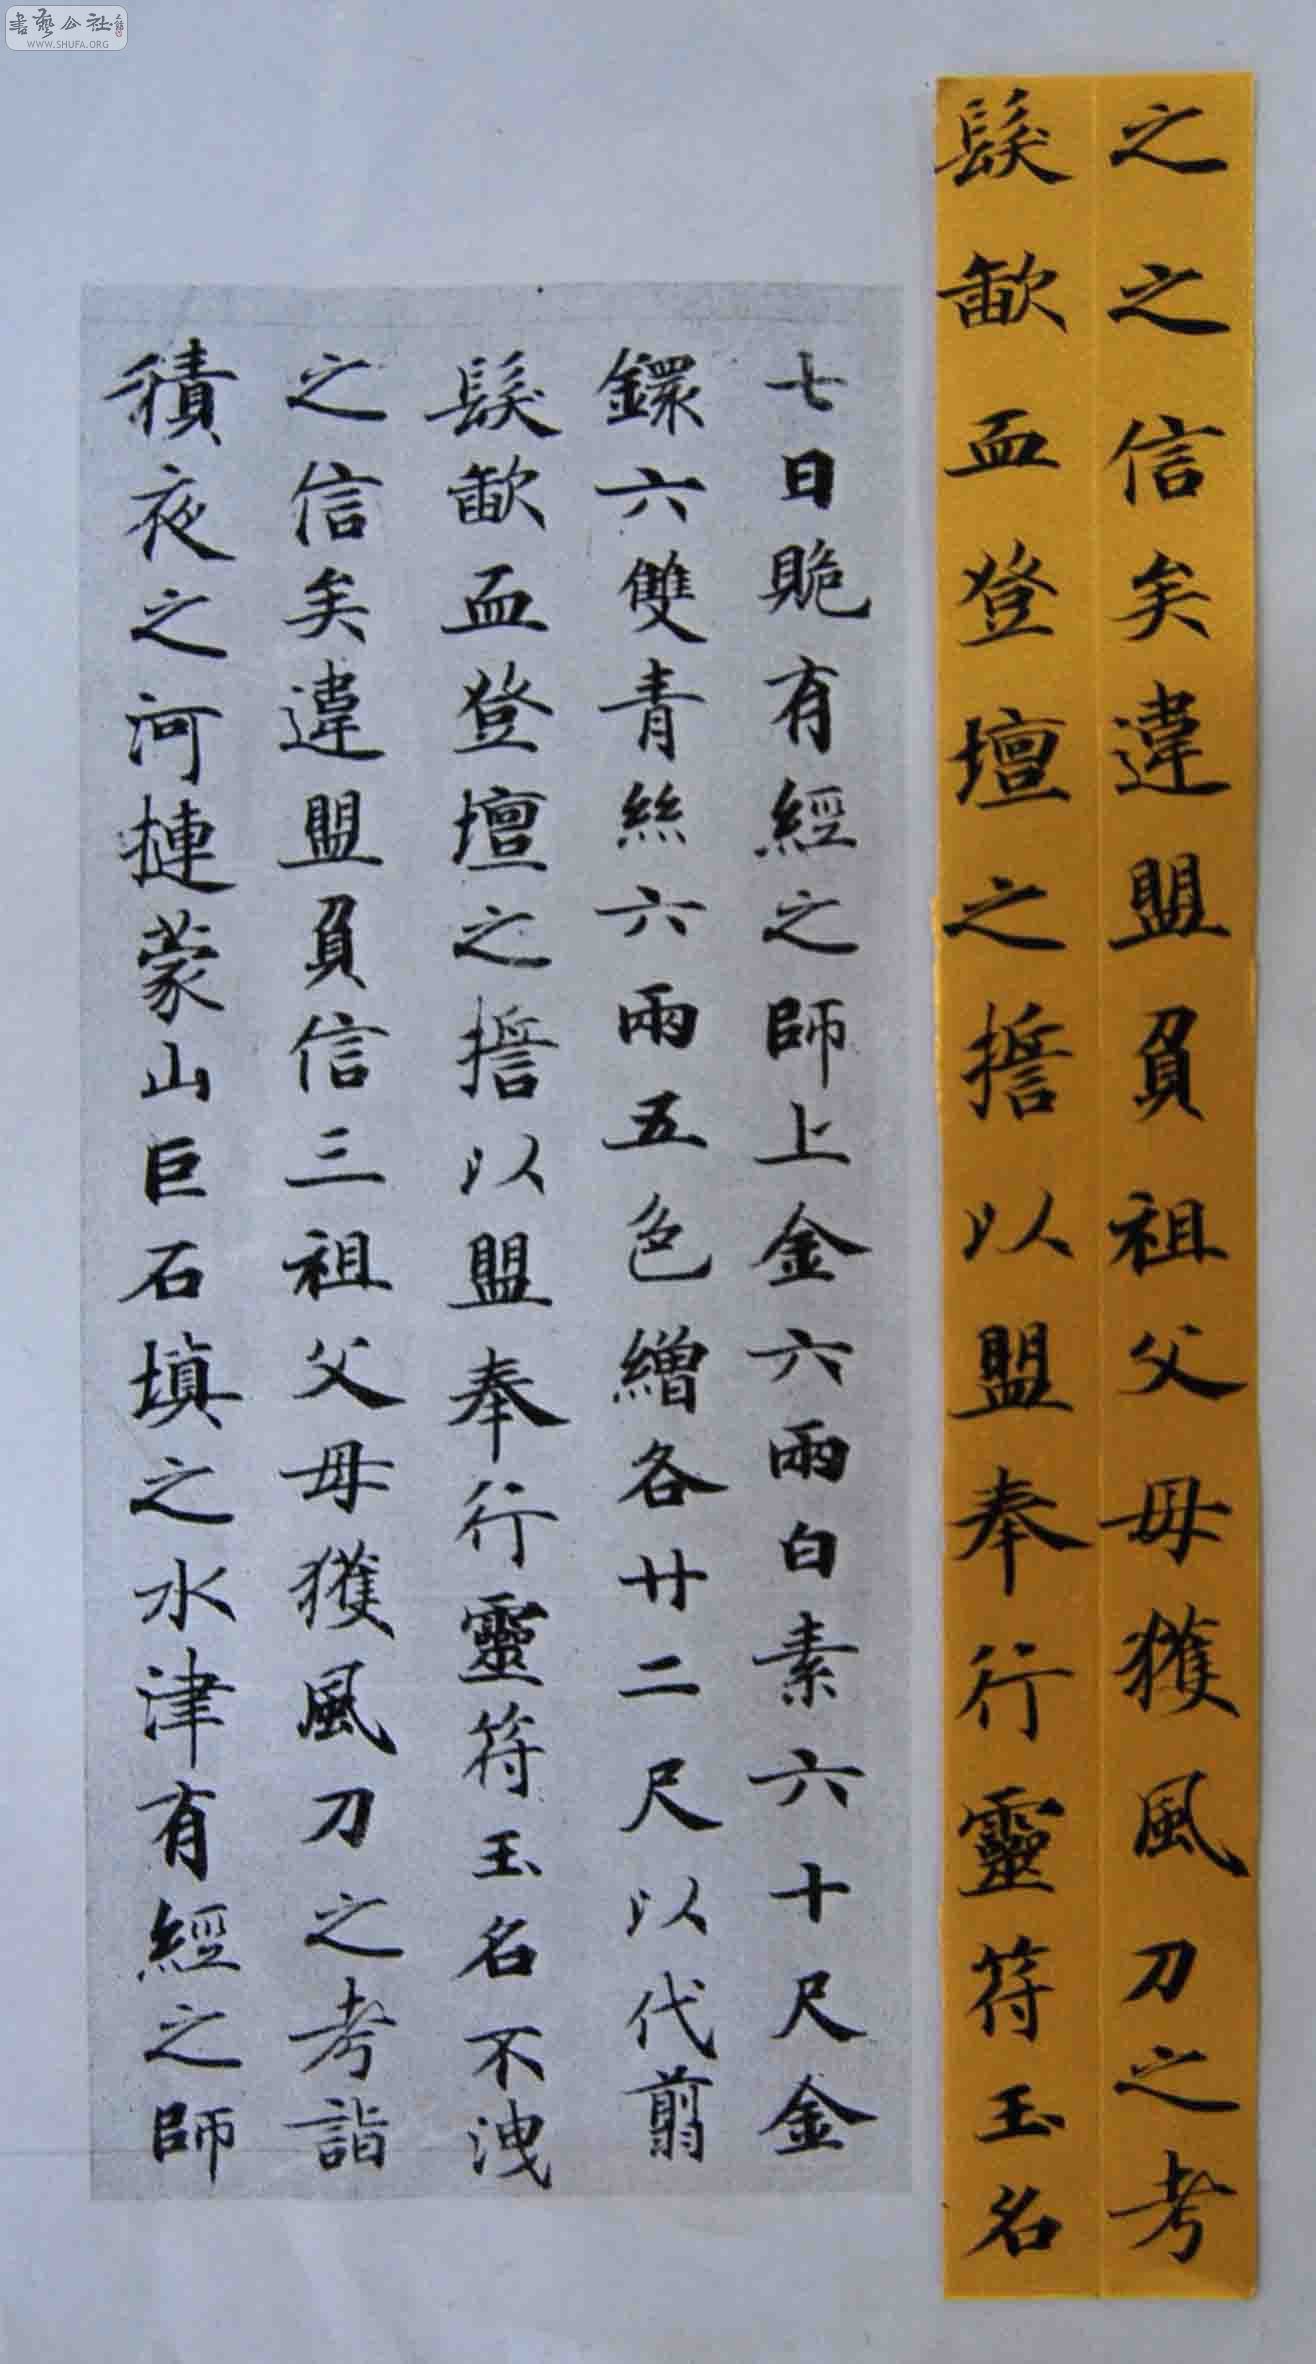 書藝公社
WWW.SHUFA.ORG
之之信矣違盟負祖父母獲風刀之考
髮歃血登壇之誓以盟奉行靈符玉名
七日賍有經之師上金六兩白素六十尺金
鐶六雙青絲六兩五色繒各廿二尺以代翦
髮歃血登壇之誓以盟奉行靈符玉名不洩
之信矣違盟負信三祖父母獲風刀之考詣
積夜之河摙蒙山巨石填之水津有經之師